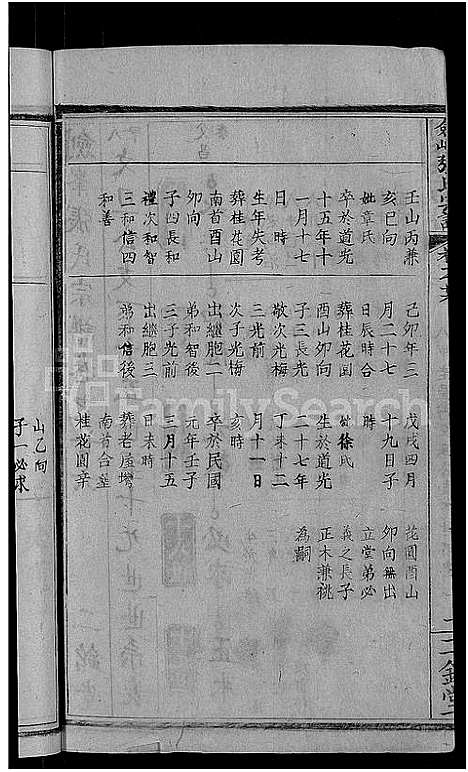 壬山丙兼
亥巳向
妣章氏
卒於道光
十五年十
一月十七
日 時
生年失考
葬桂花園
南首酉山
卯向
子四長和
禮次和智
三和信四
和善
己卯年三
月二十七
日辰時合
葬桂花園
酉山卯向
子三長光
敬次光梅
三光前
次子光梅
出繼胞二
弟和智後
三子光前
出繼胞三
弟和信後
戊戌四月
十九日子
時
妣徐氏
生於道光
二十七年
丁未十二
月十一日
亥時
卒於民國
元年壬子
三月十五
日未時
葬老屋塆
南首合塟
桂花園辛
山乙向
子一必求
花園酉山
卯向無出
立堂弟必
義之長子
正木兼祧
為嗣
張氏宗譜
二銘堂
FamilySearch